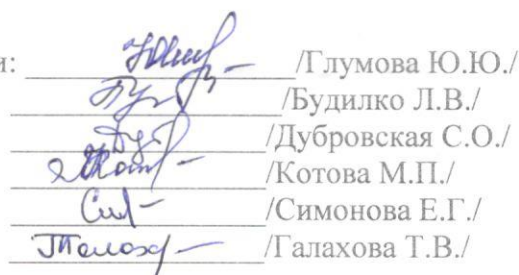 и: /Глумова Ю.Ю./
/Будилко Л.В./
/Дубровская С.О./
/Котова М.П./
/Симонова Е.Г./
/Галахова Т.В./